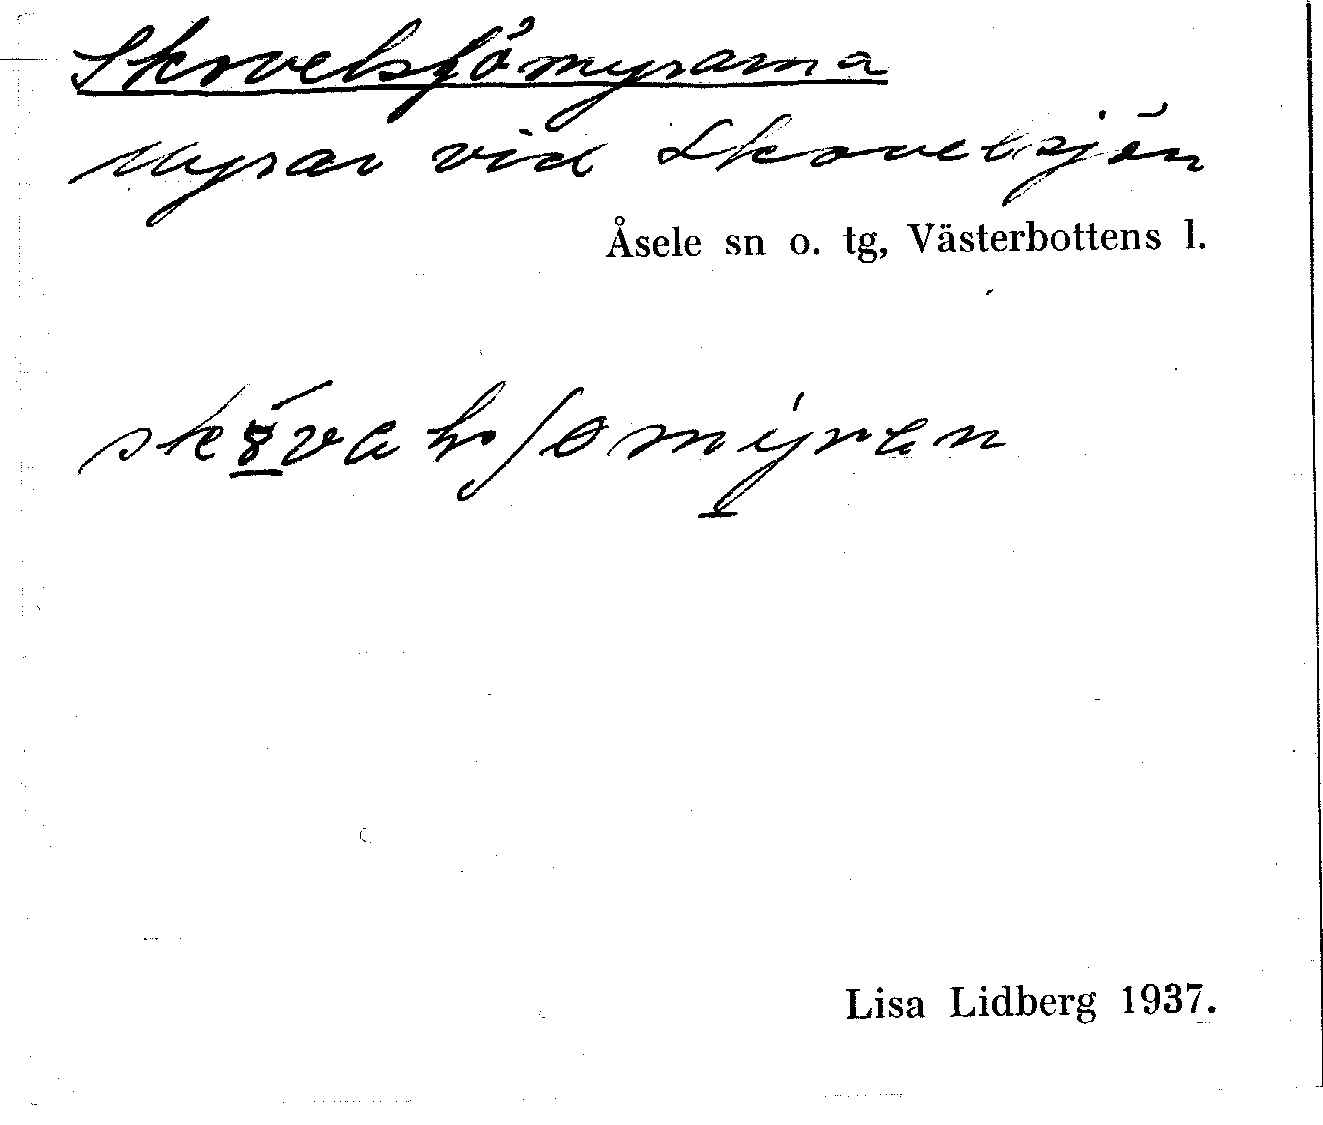 Skovelsjömyrarna
Myrar vid Skovelsjön
Åsele sn o. tg, Västerbottens l.
Lisa Lidberg 1937.